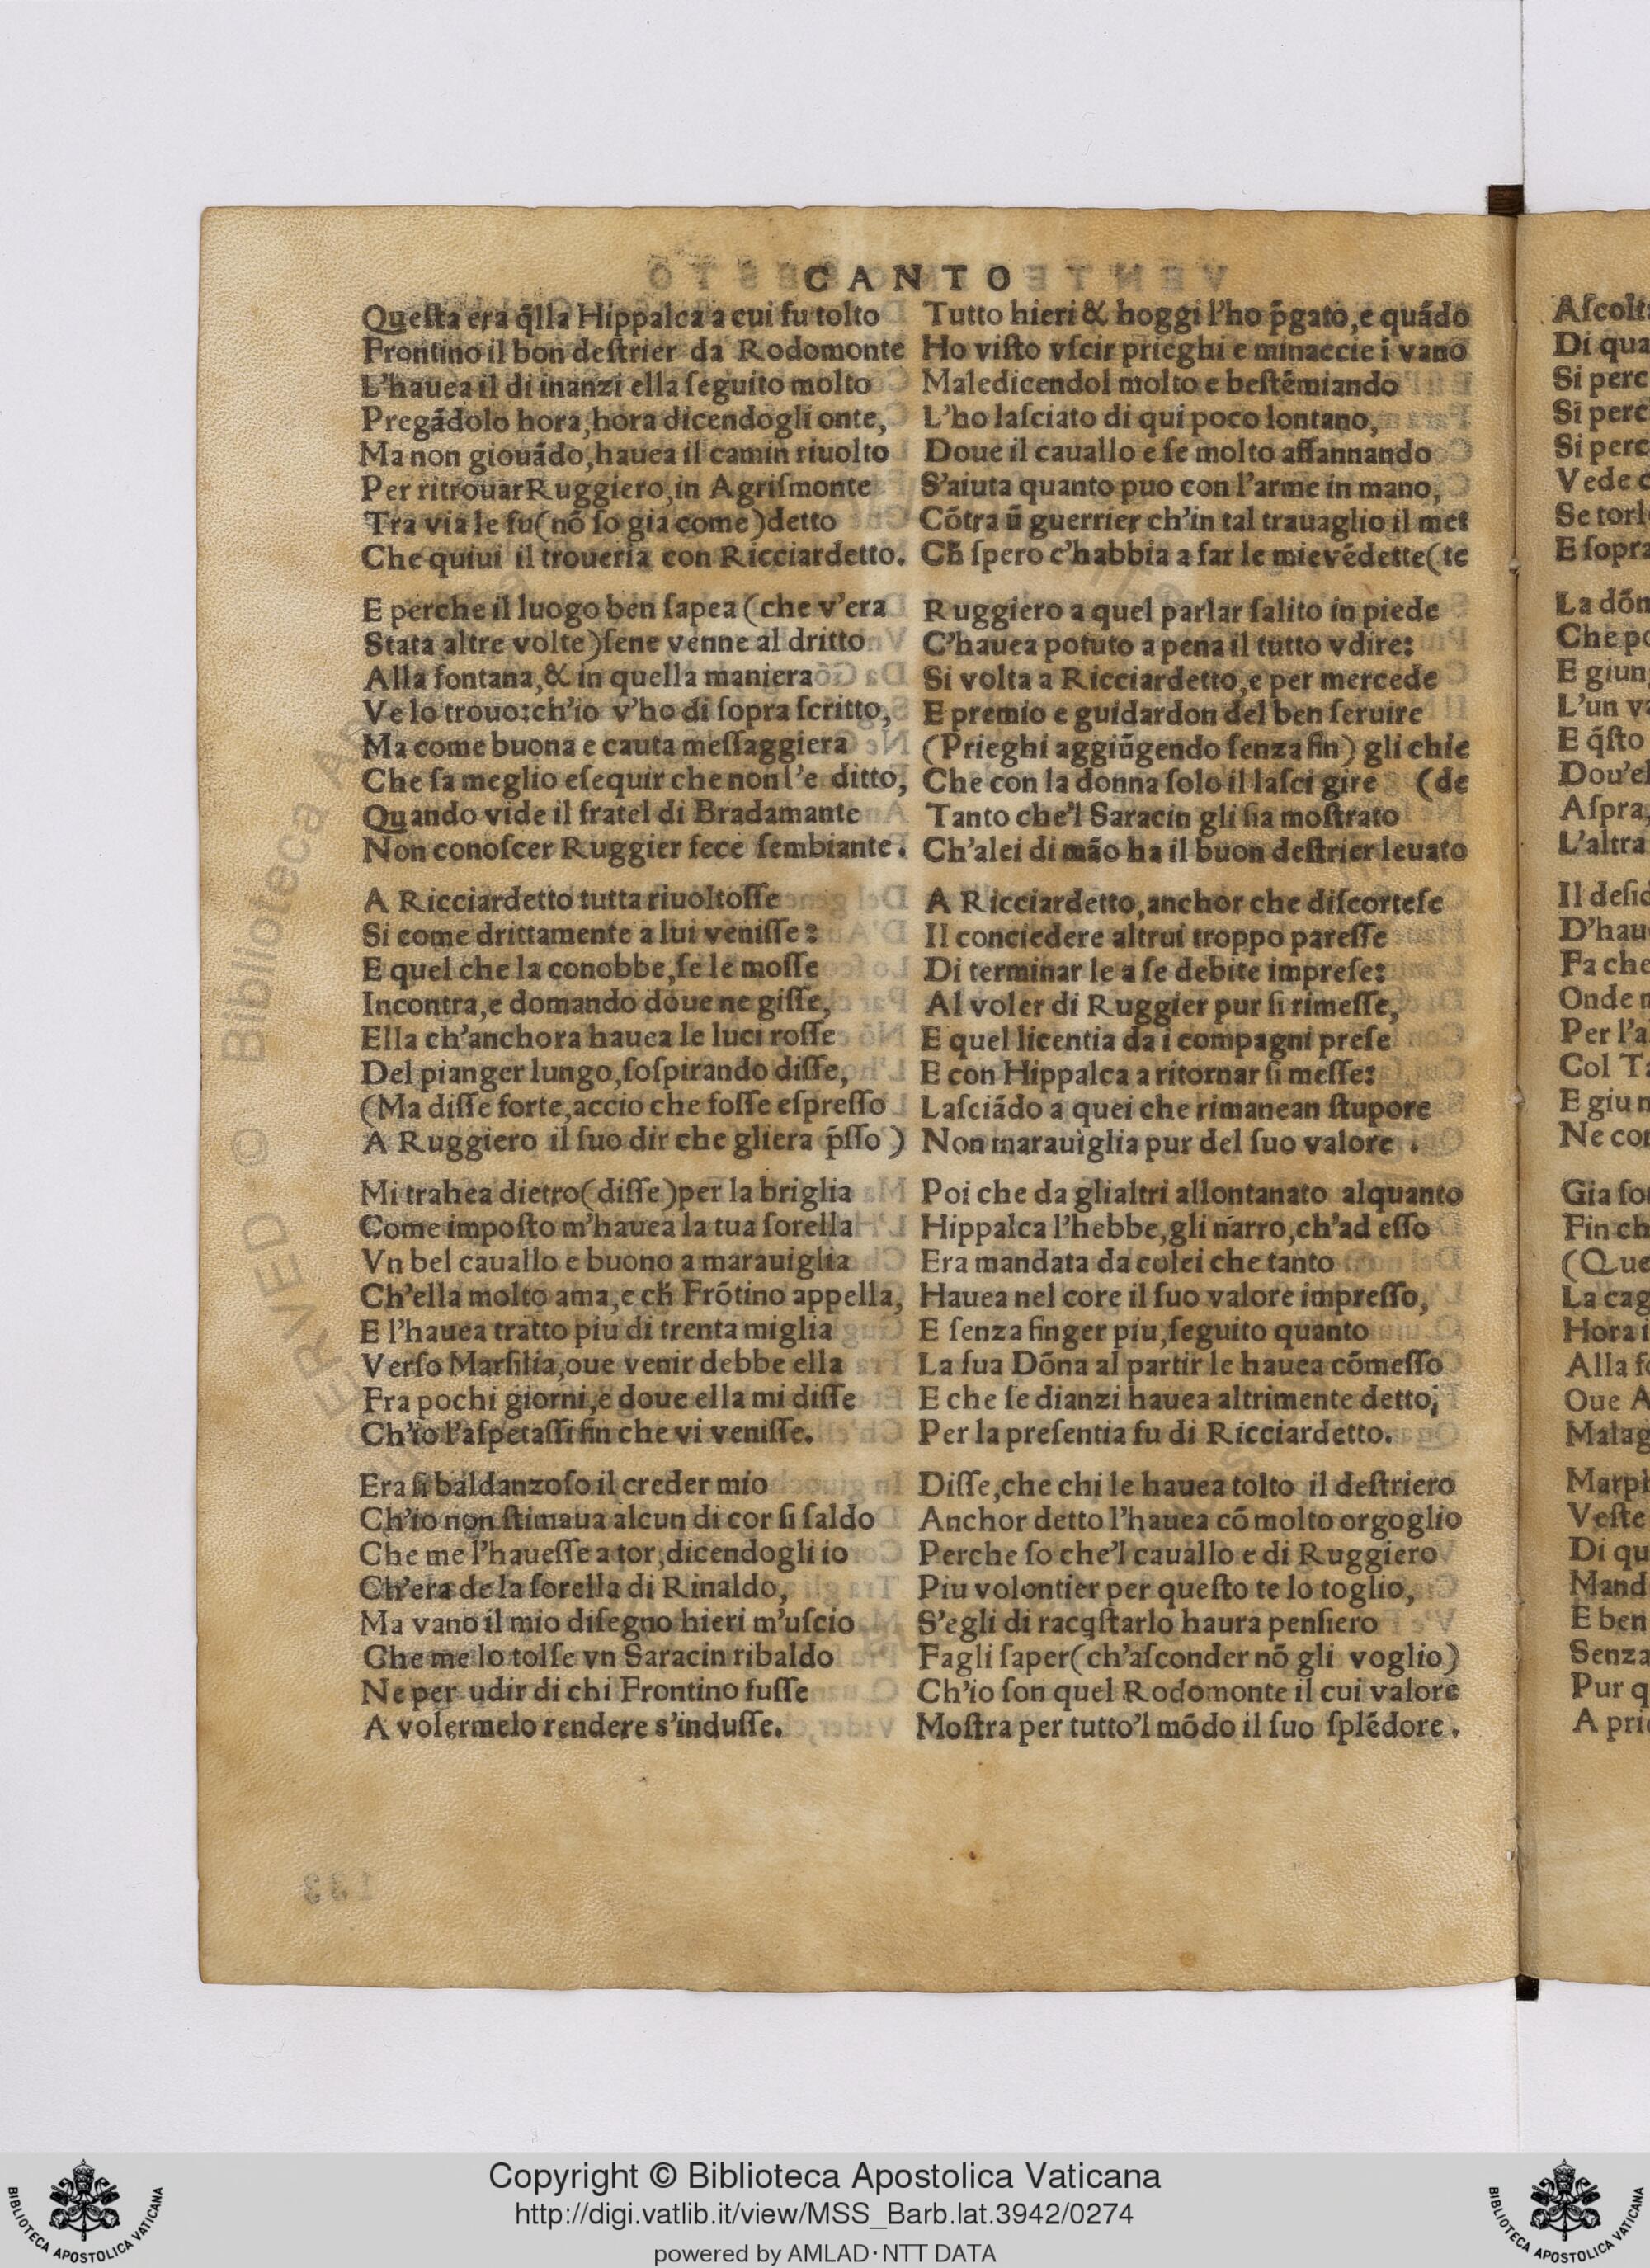 CANTO
Queſta era q̃lla Hippalca a cui fu tolto
Frontino il bon deſtrier da Rodomonte
L'hauea il di inanzi ella ſeguito molto
Pregãdolo hora, hora dicendogli onte,
Ma non giouãdo, hauea il camin riuolto
Per ritrouar Ruggiero, in Agriſmonte
Tra via le fu (nõ ſo gia come) detto
Che quiui il troueria con Ricciardetto.
E perche il luogo ben ſapea (che v'era
Stata altre volte) ſene venne al dritto
Alla fontana, & in quella maniera
Ve lo trouo: ch'io v'ho di ſopra ſcritto,
Ma come buona e cauta meſſaggiera
Che ſa meglio eſequir che non l'e ditto,
Quando vide il fratel di Bradamante
Non conoſcer Ruggier fece ſembiante.
A Ricciardetto tutta riuoltoſſe
Si come drittamente a lui veniſſe:
E quel che la conobbe, ſe le moſſe
Incontra, e domando doue ne giſſe,
Ella ch'anchora hauea le luci roſſe
Del pianger lungo, ſoſpirando diſſe,
(Ma diſſe forte, accio che foſſe eſpreſſo
A Ruggiero il ſuo dir che gliera p̃ſſo)
Mi trahea dietro (diſſe) per la briglia
Come impoſto m'hauea la tua ſorella
Vn bel cauallo e buono a marauiglia
Ch'ella molto ama, e ch̃ Frõtino appella,
E l'hauea tratto piu di trenta miglia
Verſo Marſilia, oue venir debbe ella
Fra pochi giorni, e doue ella mi diſſe
Ch'io l'aſpetaſſi fin che vi veniſſe.
Era ſi baldanzoſo il creder mio
Ch'io non ſtimaua alcun di cor ſi ſaldo
Che me l'haueſſe a tor, dicendogli io
Ch'era de la ſorella di Rinaldo,
Ma vano il mio diſegno hieri m'uſcio
Che me lo tolſe vn Saracin ribaldo
Ne per udir di chi Frontino fuſſe
A volermelo rendere s'induſſe.
Tutto hieri & hoggi l'ho p̃gato, e quãdo
Ho viſto vſcir prieghi e minaccie ĩ vano
Maledicendol molto e beſtẽmiando
L'ho laſciato di qui poco lontano,
Doue il cauallo e ſe molto affannando
S'aiuta quanto puo con l'arme in mano,
Cõtra ũ guerrier ch'in tal trauaglio il met
Ch̃ ſpero c'habbia a far le mie vẽdette (te
Ruggiero a quel parlar ſalito in piede
C'hauea potuto a pena il tutto vdire:
Si volta a Ricciardetto, e per mercede
E premio e guidardon del ben ſeruire
(Prieghi aggiũgendo ſenza fin) gli chie
Che con la donna ſolo il laſci gire (de
Tanto che'l Saracin gli ſia moſtrato
Ch'alei di mão ha il buon deſtrier leuato
A Ricciardetto, anchor che diſcorteſe
Il conciedere altrui troppo pareſſe
Di terminar le a ſe debite impreſe:
Al voler di Ruggier pur ſi rimeſſe,
E quel licentia da i compagni preſe
E con Hippalca a ritornar ſi meſſe:
Laſciãdo a quei che rimanean ſtupore
Non marauiglia pur del ſuo valore.
Poi che da glialtri allontanato alquanto
Hippalca l'hebbe, gli narro, ch'ad eſſo
Era mandata da colei che tanto
Hauea nel core il ſuo valore impreſſo,
E ſenza finger piu, ſeguito quanto
La ſua Dõna al partir le hauea cõmeſſo
E che ſe dianzi hauea altrimente detto;
Per la preſentia fu di Ricciardetto.
Diſſe, che chi le hauea tolto il deſtriero
Anchor detto l'hauea cõ molto orgoglio
Perche ſo che'l cauallo e di Ruggiero
Piu volontier per queſto te lo toglio,
S'egli di racqſtarlo haura penſiero
Fagli ſaper (ch'aſconder nõ gli voglio)
Ch'io ſon quel Rodomonte il cui valore
Moſtra per tutto'l mõdo il ſuo ſplẽdore.
Di qua
Si perc
Si perc
Si perc
Vede c
E ſopra
E giun
L'un va
E q̃ſto
Dou'el
Aſpra,
L'altra
D'hau
Fa che
Per l'a
E giun
Gia ſon
Fin ch
(Que
La cag
Hora i
Oue A
Malag
Veſte
Di qu
Mand
E ben
Senza
Pur q
A pri
Copyright © Biblioteca Apostolica Vaticana
http://digi.vatlib.it/view/MSS_Barb.lat.3942/0274
powered by AMLAD·NTT DATA
BIBLIOTECA APOSTOLICA VATICANA
BIBLIOTECA APOSTOLICA VATICANA